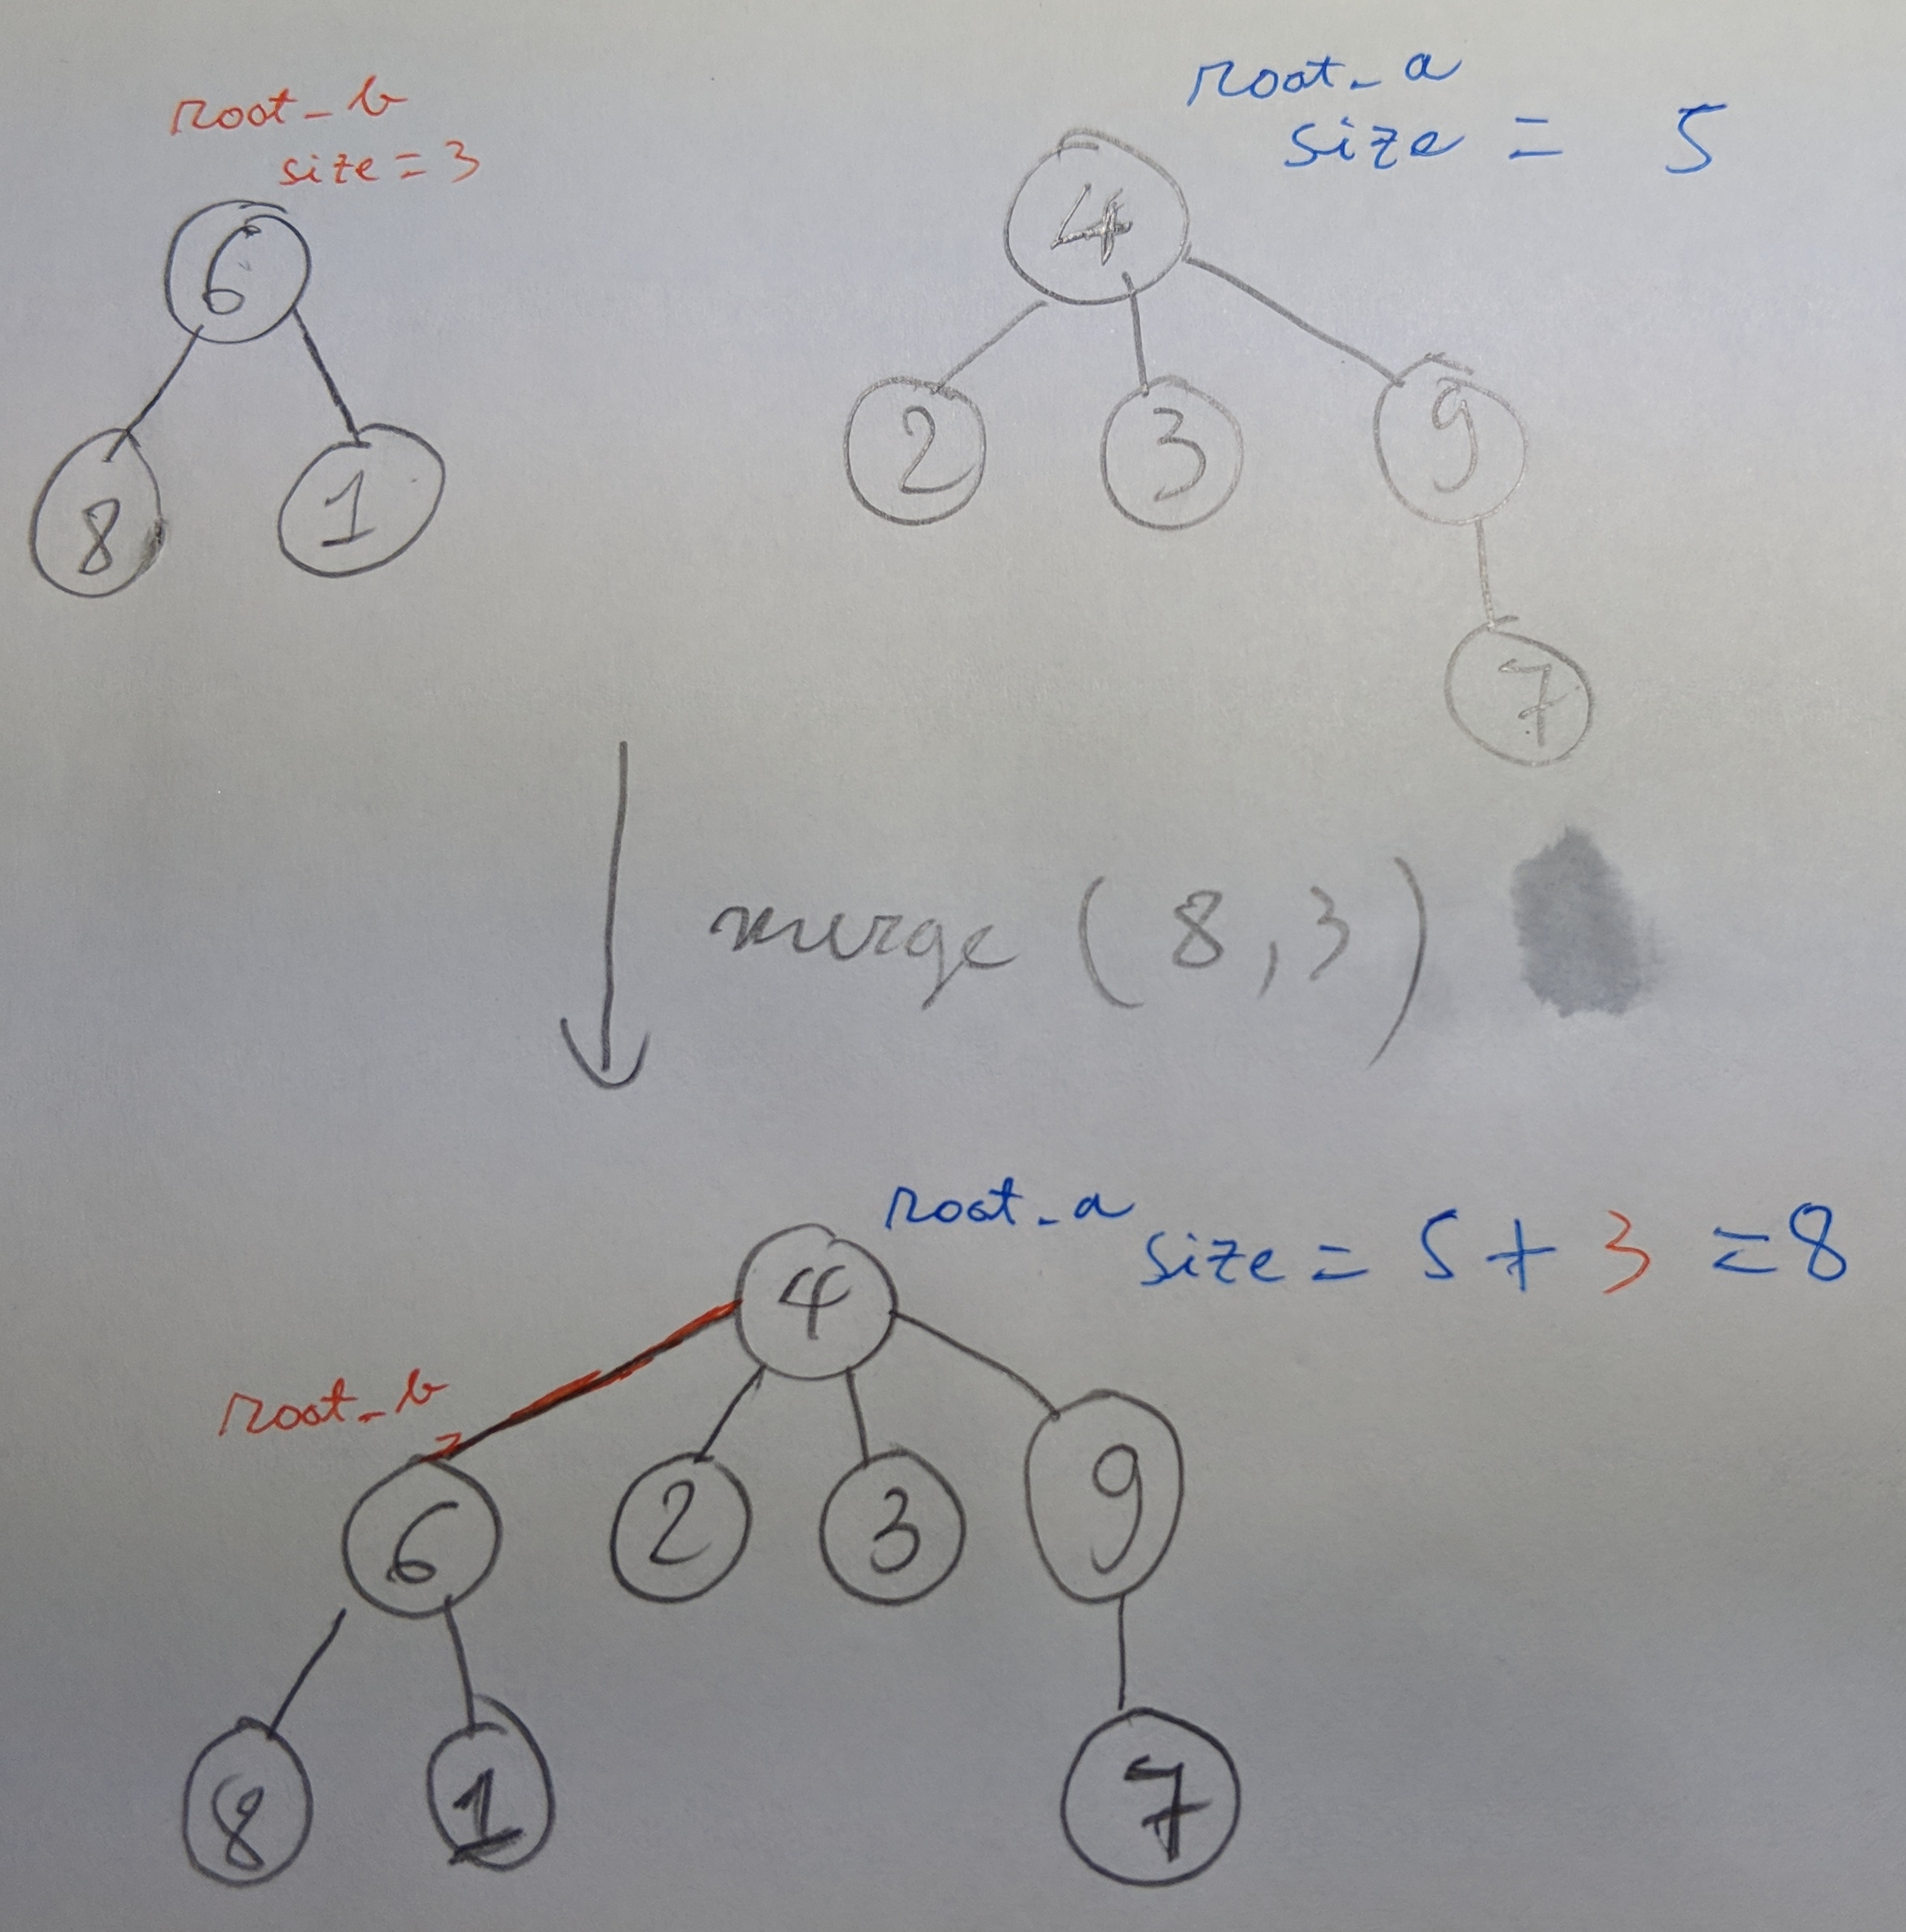 root_b
size = 3
root_a
size = 5
6
4
8
1
2
3
9
7
merge (8,3)
root_a
size = 5 + 3 = 8
4
root_b
6
2
3
9
8
1
7